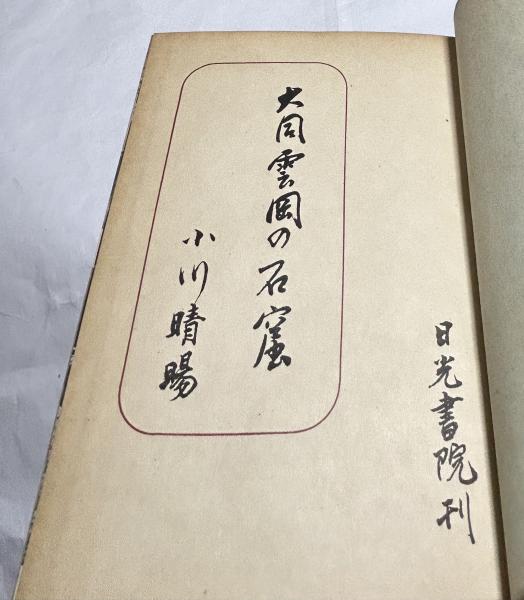 大同雲岡の石窟
小川晴暘
日光書院刊